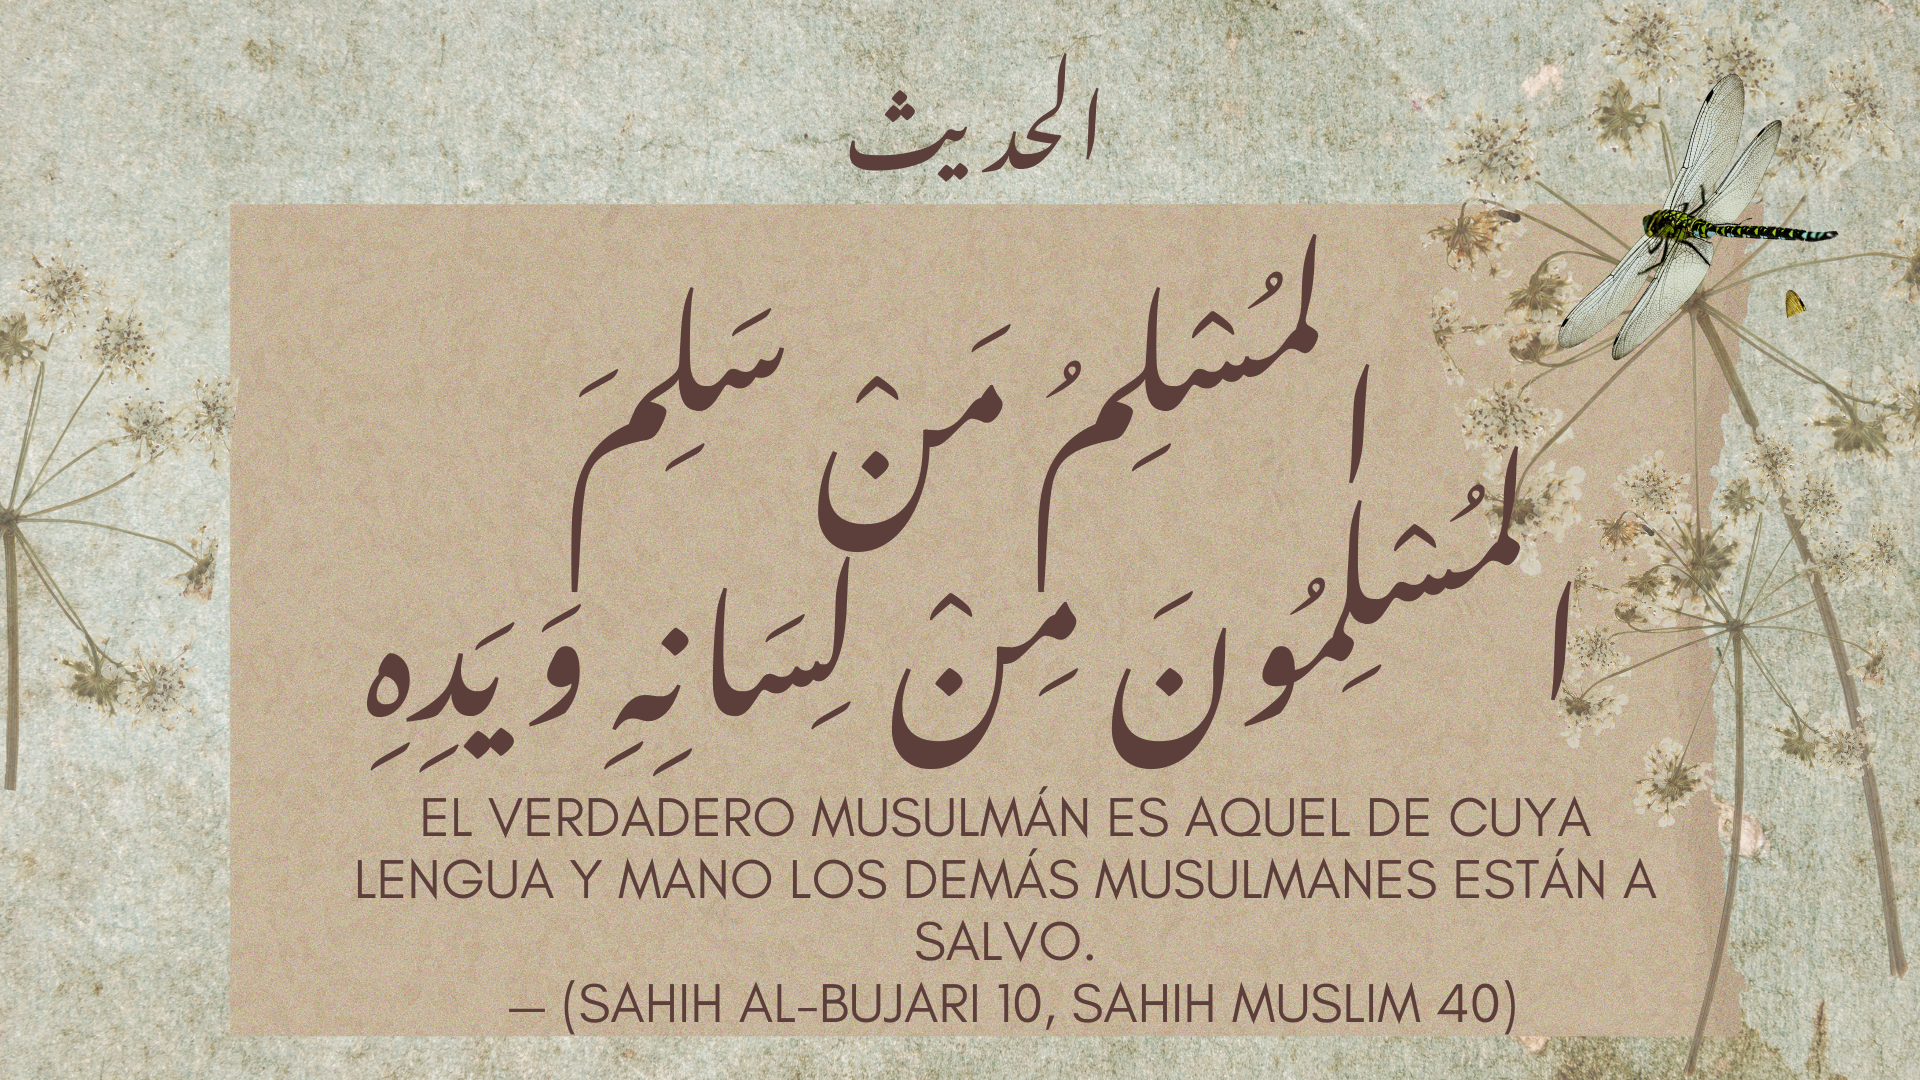 الحديث
المُسْلِمُ مَنْ سَلِمَ
المُسْلِمُونَ مِنْ لِسَانِهِ وَيَدِهِ
EL VERDADERO MUSULMÁN ES AQUEL DE CUYA
LENGUA Y MANO LOS DEMÁS MUSULMANES ESTÁN A
SALVO.
— (SAHIH AL-BUJARI 10, SAHIH MUSLIM 40)